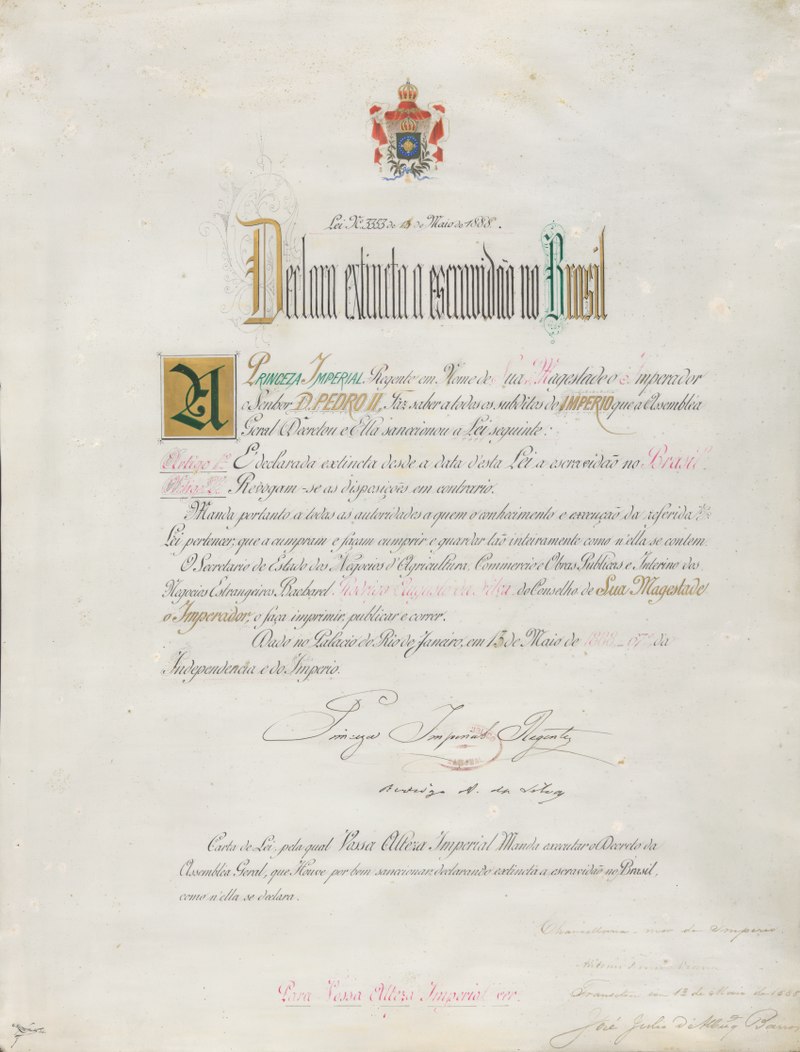 Lei Nº 3353 de 13 de Maio de 1888.
Declara extincta a escravidão no Brasil
A PRINCEZA IMPERIAL Regente em Nome de Sua Magestade o Imperador
o Senhor D. PEDRO II, Faz saber a todos os subditos do IMPERIO que a Assembléa
Geral Decretou e Ella sanccionou a Lei seguinte:
Artigo 1º É declarada extincta desde a data d'esta Lei a escravidão no Brasil.
Artigo 2º Revogam-se as disposições em contrario.
Manda portanto a todas as autoridades a quem o conhecimento e execução da referida
Lei pertencer, que a cumpram e façam cumprir e guardar tão inteiramente como n'ella se contem.
O Secretario de Estado dos Negocios d'Agricultura, Commercio e Obras Publicas e Interino dos
Negocios Estrangeiros Bacharel Rodrigo Augusto da Silva do Conselho de Sua Magestade
o Imperador, o faça imprimir, publicar e correr.
Dado no Palacio do Rio de Janeiro, em 13 de Maio de 1888 - 67º da
Independencia e do Imperio.
Princeza Imperial Regente
Rodrigo A. da Silva
Carta de Lei, pela qual Vossa Alteza Imperial Manda executar o Decreto da
Assembléa Geral, que Houve por bem sanccionar, declarando extincta a escravidão no Brasil,
como n'ella se declara.
Para Vossa Alteza Imperial ver.
Chancellaria-mor do Imperio.
Transitou em 13 de Maio de 1888
José Julio d'Albuqº Barros